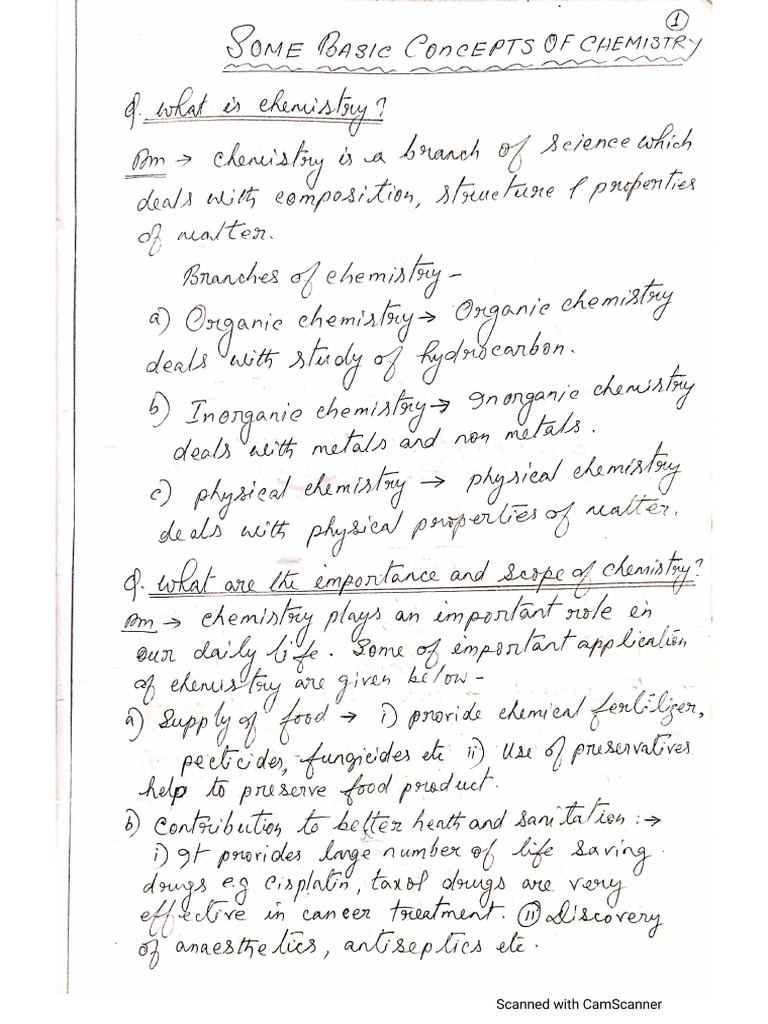 1
SOME BASIC CONCEPTS OF CHEMISTRY
Q. What is chemistry?
Ans → Chemistry is a branch of science which
deals with composition, structure & properties
of matter.
Branches of chemistry –
a) Organic chemistry → Organic chemistry
deals with study of hydrocarbon.
b) Inorganic chemistry → Inorganic chemistry
deals with metals and non metals.
c) physical chemistry → physical chemistry
deals with physical properties of matter.
Q. What are the importance and scope of chemistry?
Ans → Chemistry plays an important role in
our daily life. Some of important application
of chemistry are given below –
a) Supply of food → i) provide chemical fertilizer,
pecticides, fungicides etc ii) Use of preservatives
help to preserve food product.
b) Contribution to better heath and sanitation :→
i) It provides large number of life saving
drugs e.g cisplatin, taxol drugs are very
effective in cancer treatment. ii) Discovery
of anaesthetics, antiseptics etc.
Scanned with CamScanner